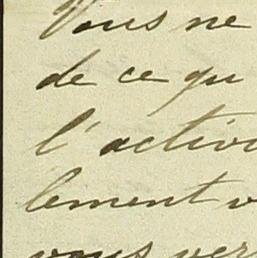 Vous ne
de ce qu
l'activ
lement v
vous ver